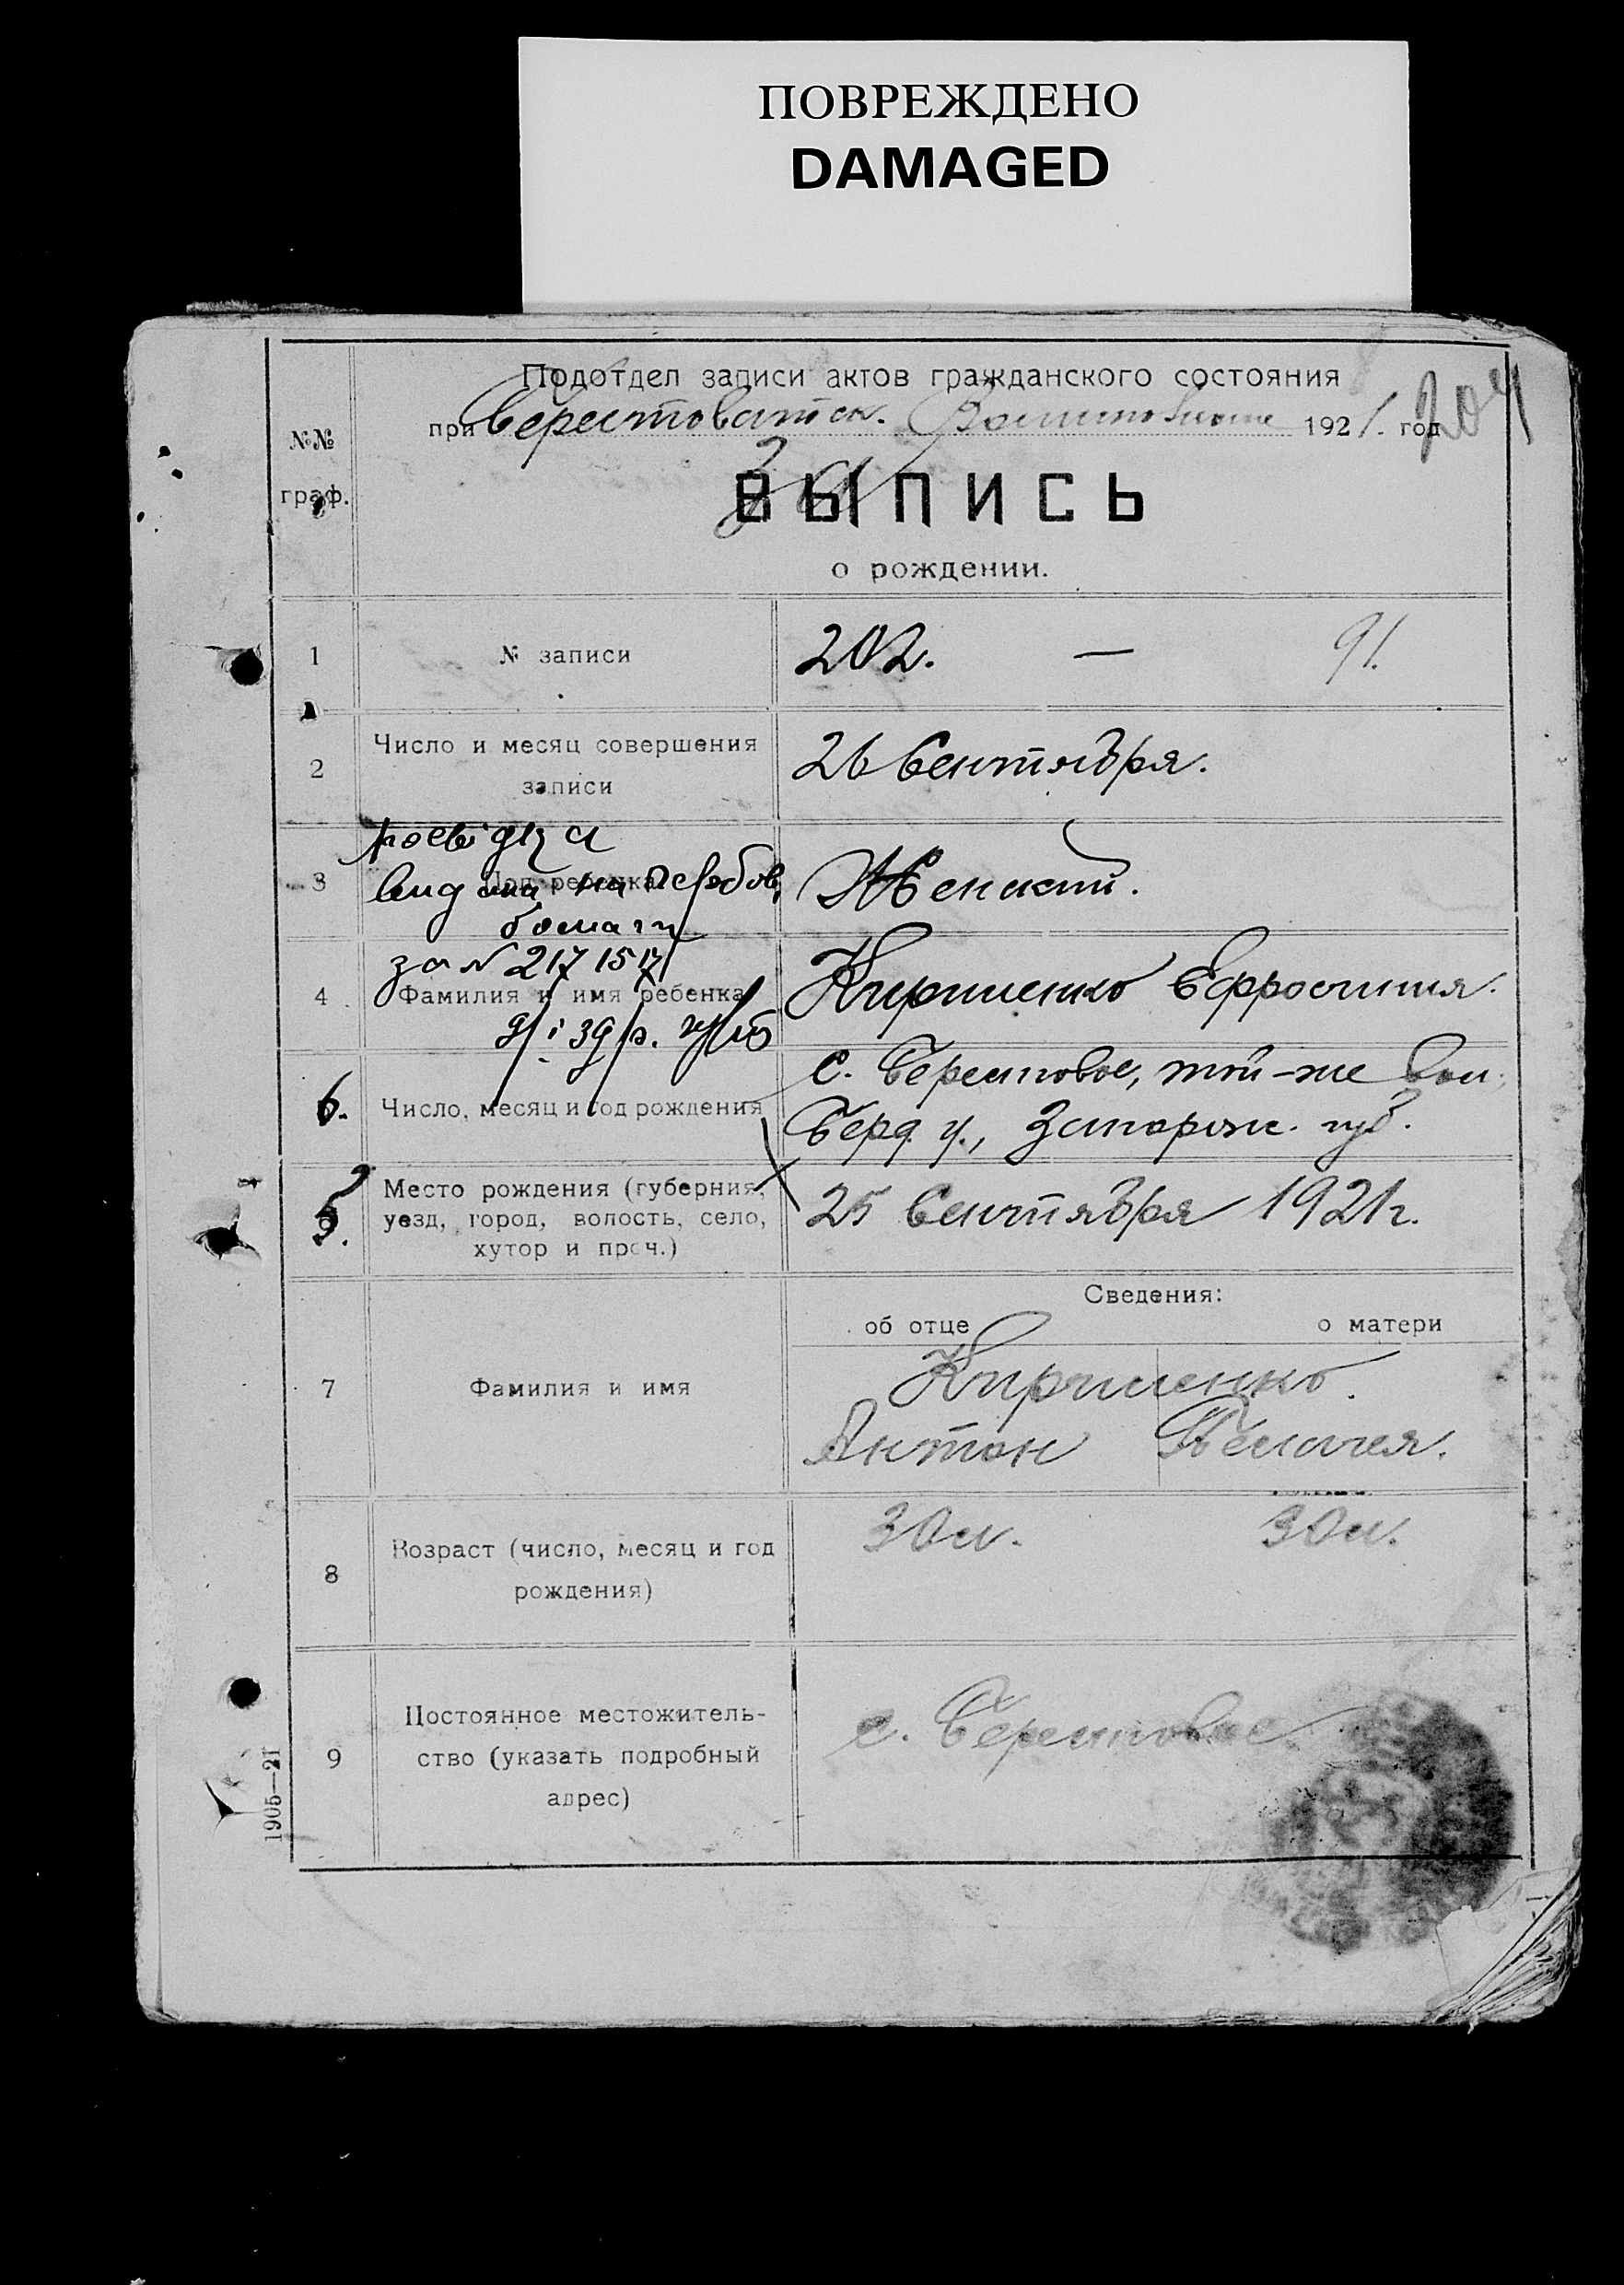 ПОВРЕЖДЕНО
DAMAGED
Подотдел записи актов гражданского состояния
при Берестоватск. 1921. год
204
№№
граф.
ВЫПИСЬ
о рождении.
1 № записи 202. — 91.
2 Число и месяц совершения
записи
26 Сентября.
3 Пол ребенка Женский.
за № 217
4 Фамилия и имя ребенка Ефросиния.
6. Число, месяц и год рождения
с. Берестовое, той-же вол.
Берд. у., Запорож. губ.
5. Место рождения (губерния,
уезд, город, волость, село,
хутор и проч.)
25 Сентября 1921 г.
Сведения:
об отце о матери
7 Фамилия и имя
Антон Пелагея.
8 Возраст (число, месяц и год
рождения)
30 л. 30 л.
9 Постоянное местожитель-
ство (указать подробный
адрес)
с. Берестовое
1905—21